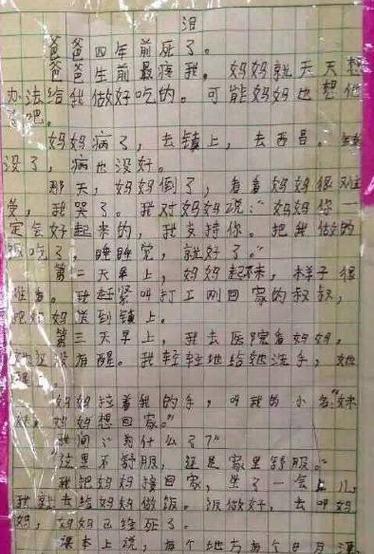 泪
爸爸四年前死了。
爸爸生前最疼我，妈妈就天天想
办法给我做好吃的。可能妈妈也想他
了吧。
妈妈病了，去镇上，去西昌。钱
没了，病也没好。
那天，妈妈倒了，看着妈妈很难
受，我哭了。我对妈妈说：“妈妈你一
定会好起来的，我支持你。把我做的
饭吃了，睡睡觉，就好了。”
第二天早上，妈妈起不来，样子很
难看。我赶紧叫打工刚回家的叔叔，
把妈妈送到镇上。
第三天早上，我去医院看妈妈，
她还没有醒。我轻轻地给她洗手，她
醒了。
妈妈拉着我的手，叫我的小名：“妹
妹，妈妈想回家。”
我问：“为什么了？”
“这里不舒服，还是家里舒服。”
我把妈妈接回家，坐了一会儿，
我就去给妈妈做饭。饭做好，去叫妈
妈，妈妈已经死了。
课本上说，有个地方有个日月潭